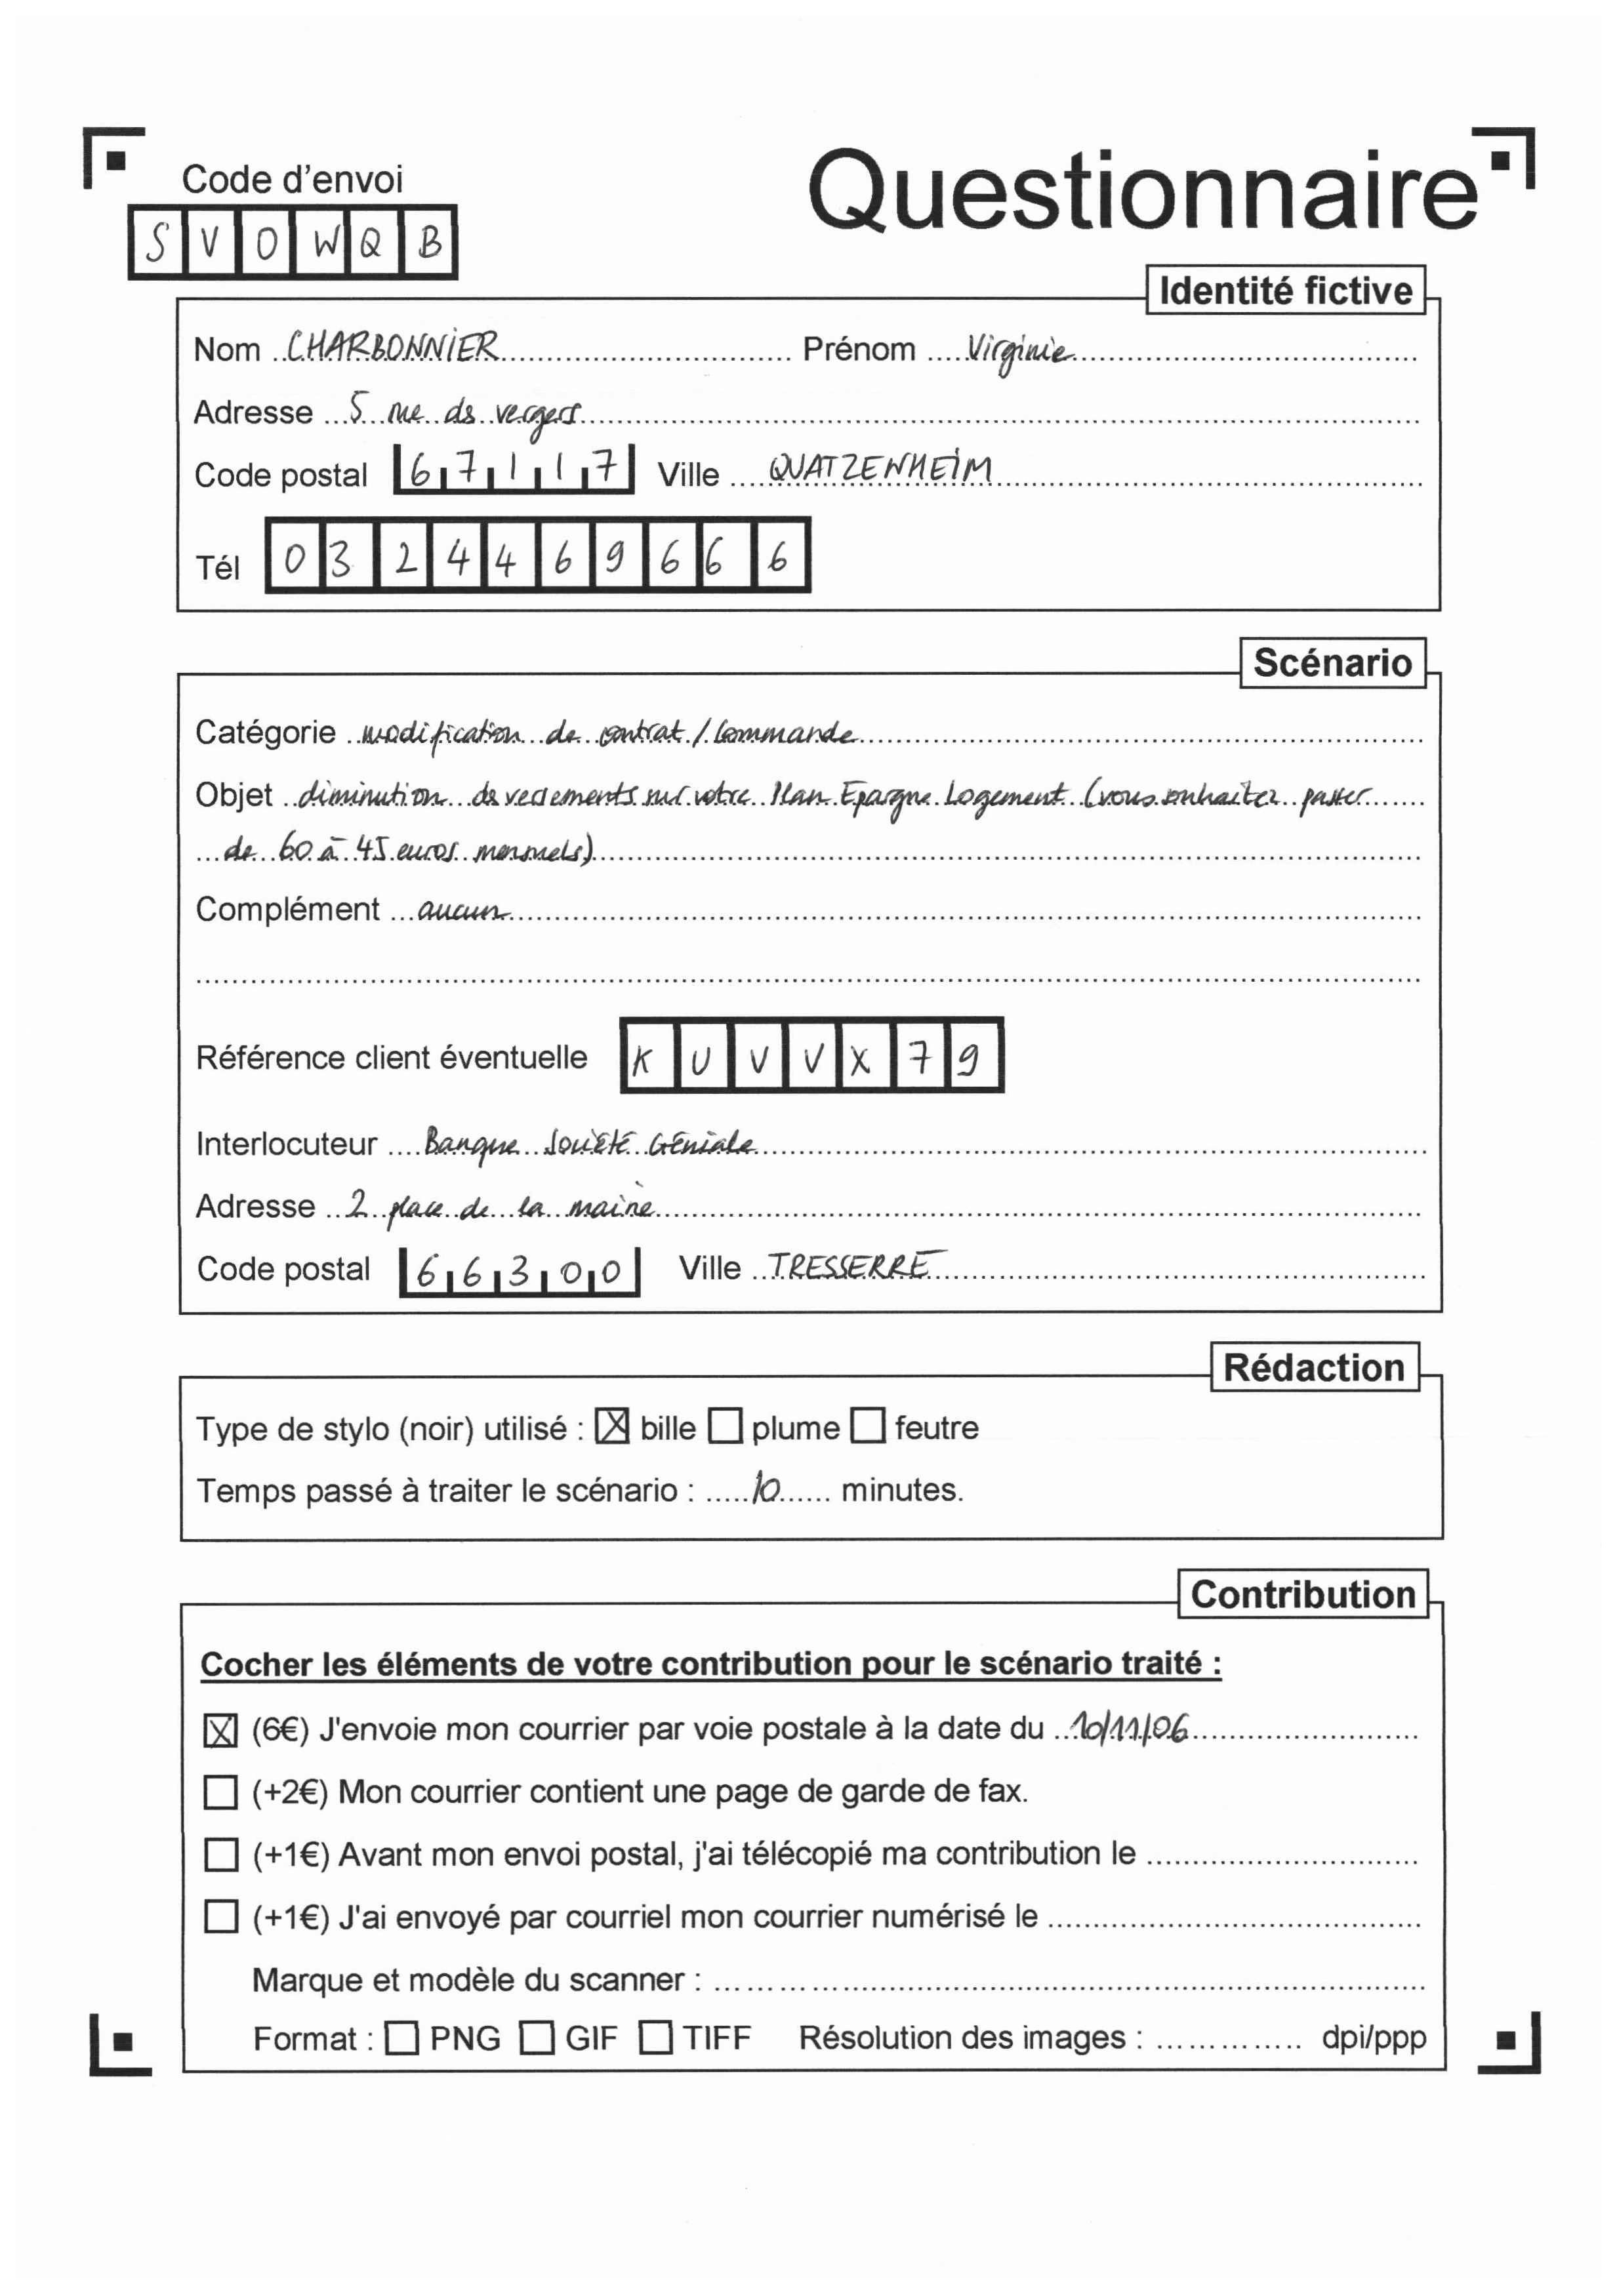 Code d'envoi
Questionnaire
S V O W Q B
Identité fictive
Nom CHARBONNIER Prénom Virginie
Adresse 5 rue des vergers
Code postal 67117 Ville QUATZENHEIM
Tél 03 24 46 96 66
Scénario
Catégorie modification de contrat / commande
Objet diminution des versements sur votre Plan Epargne Logement (vous souhaitez passer
de 60 à 45 euros mensuels)
Complément aucun
Référence client éventuelle K U V V X 7 9
Interlocuteur Banque Société Géniale
Adresse 2 place de la mairie
Code postal 66300 Ville TRESSERRE
Rédaction
Type de stylo (noir) utilisé : ☒ bille ☐ plume ☐ feutre
Temps passé à traiter le scénario : 10 minutes.
Contribution
Cocher les éléments de votre contribution pour le scénario traité :
☒ (6€) J'envoie mon courrier par voie postale à la date du 10/11/06
☐ (+2€) Mon courrier contient une page de garde de fax.
☐ (+1€) Avant mon envoi postal, j'ai télécopié ma contribution le
☐ (+1€) J'ai envoyé par courriel mon courrier numérisé le
Marque et modèle du scanner :
Format : ☐ PNG ☐ GIF ☐ TIFF Résolution des images : dpi/ppp